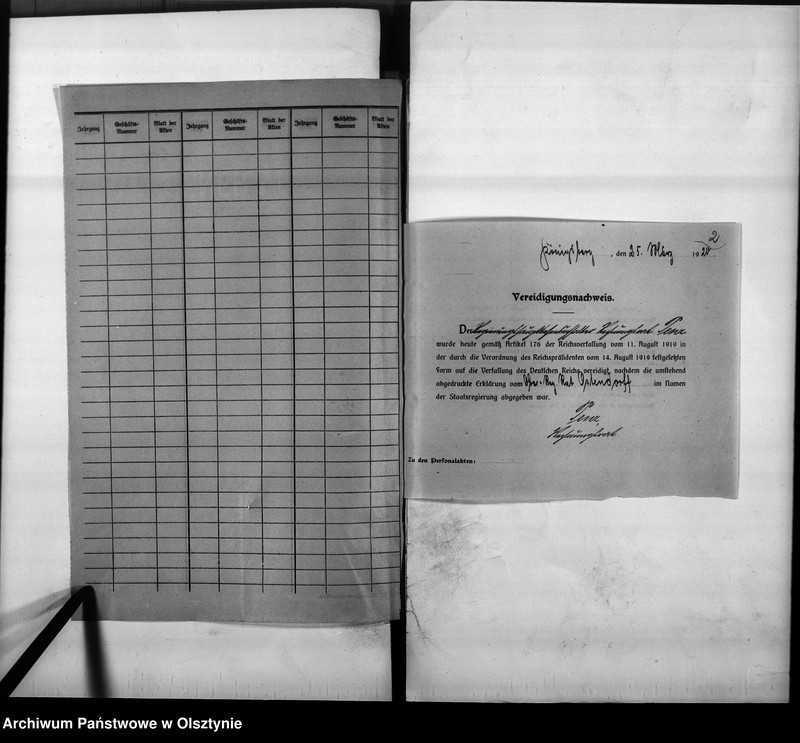 Jahrgang Geschäfts-Nummer Blatt der Akten Jahrgang Geschäfts-Nummer Blatt der Akten Jahrgang Geschäfts-Nummer Blatt der Akten
2
Königsberg, den 25. März 1920.
Vereidigungsnachweis.
Der Regierungshauptkassenbuchhalter Rechnungsrat Penz
wurde heute gemäß Artikel 176 der Reichsverfassung vom 11. August 1919 in
der durch die Verordnung des Reichspräsidenten vom 14. August 1919 festgesetzten
Form auf die Verfassung des Deutschen Reichs vereidigt, nachdem die umstehend
abgedruckte Erklärung vom Rat Ostendorff im Namen
der Staatsregierung abgegeben war.
Penz,
Rechnungsrat.
Zu den Personalakten:
Archiwum Państwowe w Olsztynie